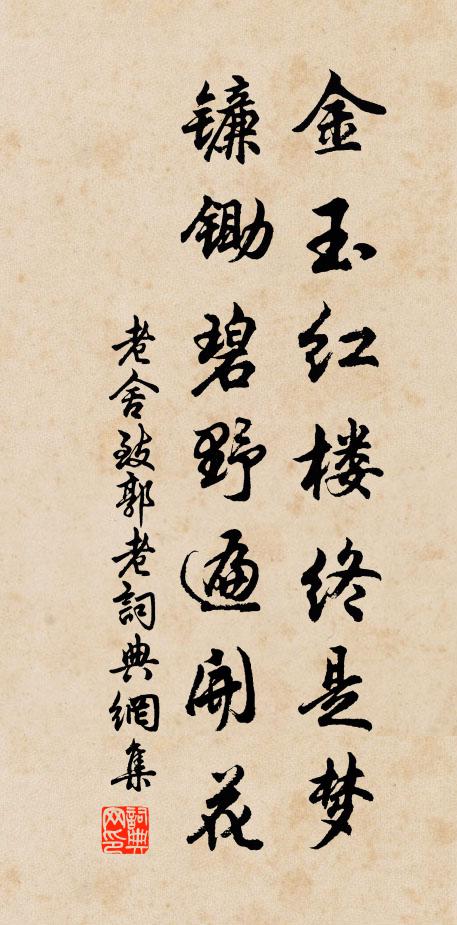 金玉红楼终是梦
镰锄碧野遍开花
老舍致郭老詞典網集
詞典
网印